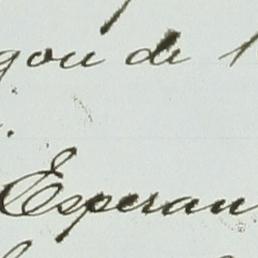 gou de 1
Esperan